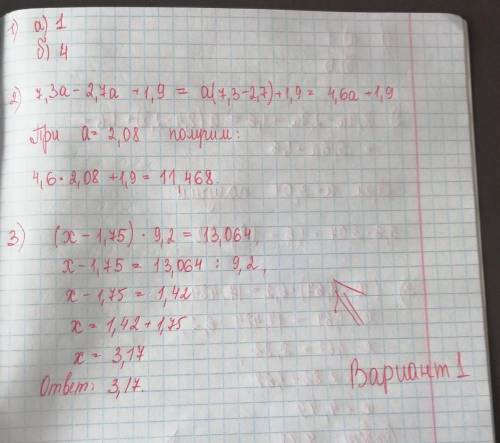 1) а) 1
б) 4
2) 7,3а - 2,7а + 1,9 = а(7,3-2,7)+1,9 = 4,6а+1,9
При а = 2,08 получим:
4,6 · 2,08 + 1,9 = 11,468.
3) (x - 1,75) · 9,2 = 13,064,
x - 1,75 = 13,064 : 9,2,
x - 1,75 = 1,42
x = 1,42 + 1,75
x = 3,17
Ответ: 3,17.
Вариант 1